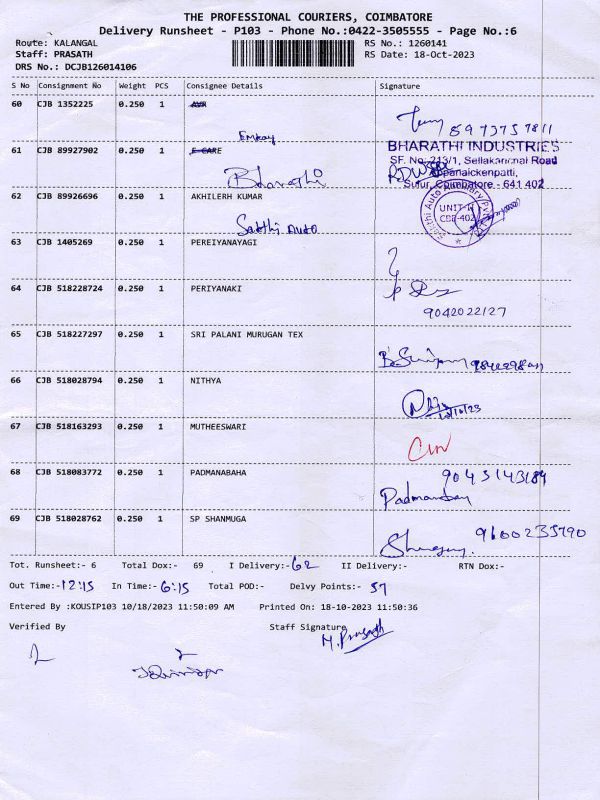 THE PROFESSIONAL COURIERS, COIMBATORE
Delivery Runsheet - P103 - Phone No.:0422-3505555 - Page No.:6
Route: KALANGAL
RS No.: 1260141
Staff: PRASATH
RS Date: 18-Oct-2023
DRS No.: DCJB126014106
S No Consignment No Weight PCS Consignee Details Signature
60 CJB 1352225 0.250 1 AVR
Emkay
8973757811
61 CJB 89927902 0.250 1 E-CARE
Bharathi
BHARATHI INDUSTRIES
SF. No: 213/1, Sellakarichal Road
Appanaickenpatti,
Sulur, Coimbatore - 641 402
62 CJB 89926696 0.250 1 AKHILERH KUMAR
Sakthi Auto
UNIT-II
CBE-402
63 CJB 1405269 0.250 1 PEREIYANAYAGI
64 CJB 518228724 0.250 1 PERIYANAKI
9042022127
65 CJB 518227297 0.250 1 SRI PALANI MURUGAN TEX
66 CJB 518028794 0.250 1 NITHYA
67 CJB 518163293 0.250 1 MUTHEESWARI
68 CJB 518083772 0.250 1 PADMANABAHA
9045143184
69 CJB 518028762 0.250 1 SP SHANMUGA
9600235790
Tot. Runsheet:- 6 Total Dox:- 69 I Delivery:- 62 II Delivery:- RTN Dox:-
Out Time:- 12:15 In Time:- 6:15 Total POD:- Delvy Points:- 57
Entered By :KOUSIP103 10/18/2023 11:50:09 AM Printed On: 18-10-2023 11:50:36
Verified By Staff Signature
M. Prasath